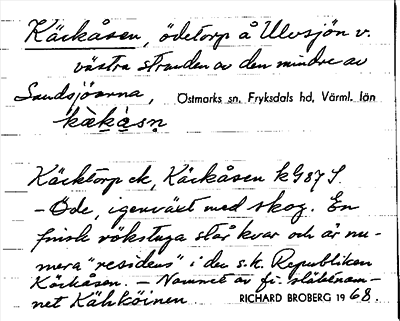 Käckåsen, ödetorp å Ulvsjön v.
västra stranden av den mindre av
Sandsjöarna, Östmarks sn, Fryksdals hd, Värml. län
kàkàsn
Käcktorp ek, Käckåsen kG87 S.
– Öde, igenväxt med skog. En
finsk rökstuga står kvar och är nu-
mera "residens" i den s.k. Republiken
Käckåsen. – Namnet av fi. släktnam-
net Kähköinen RICHARD BROBERG 1968.